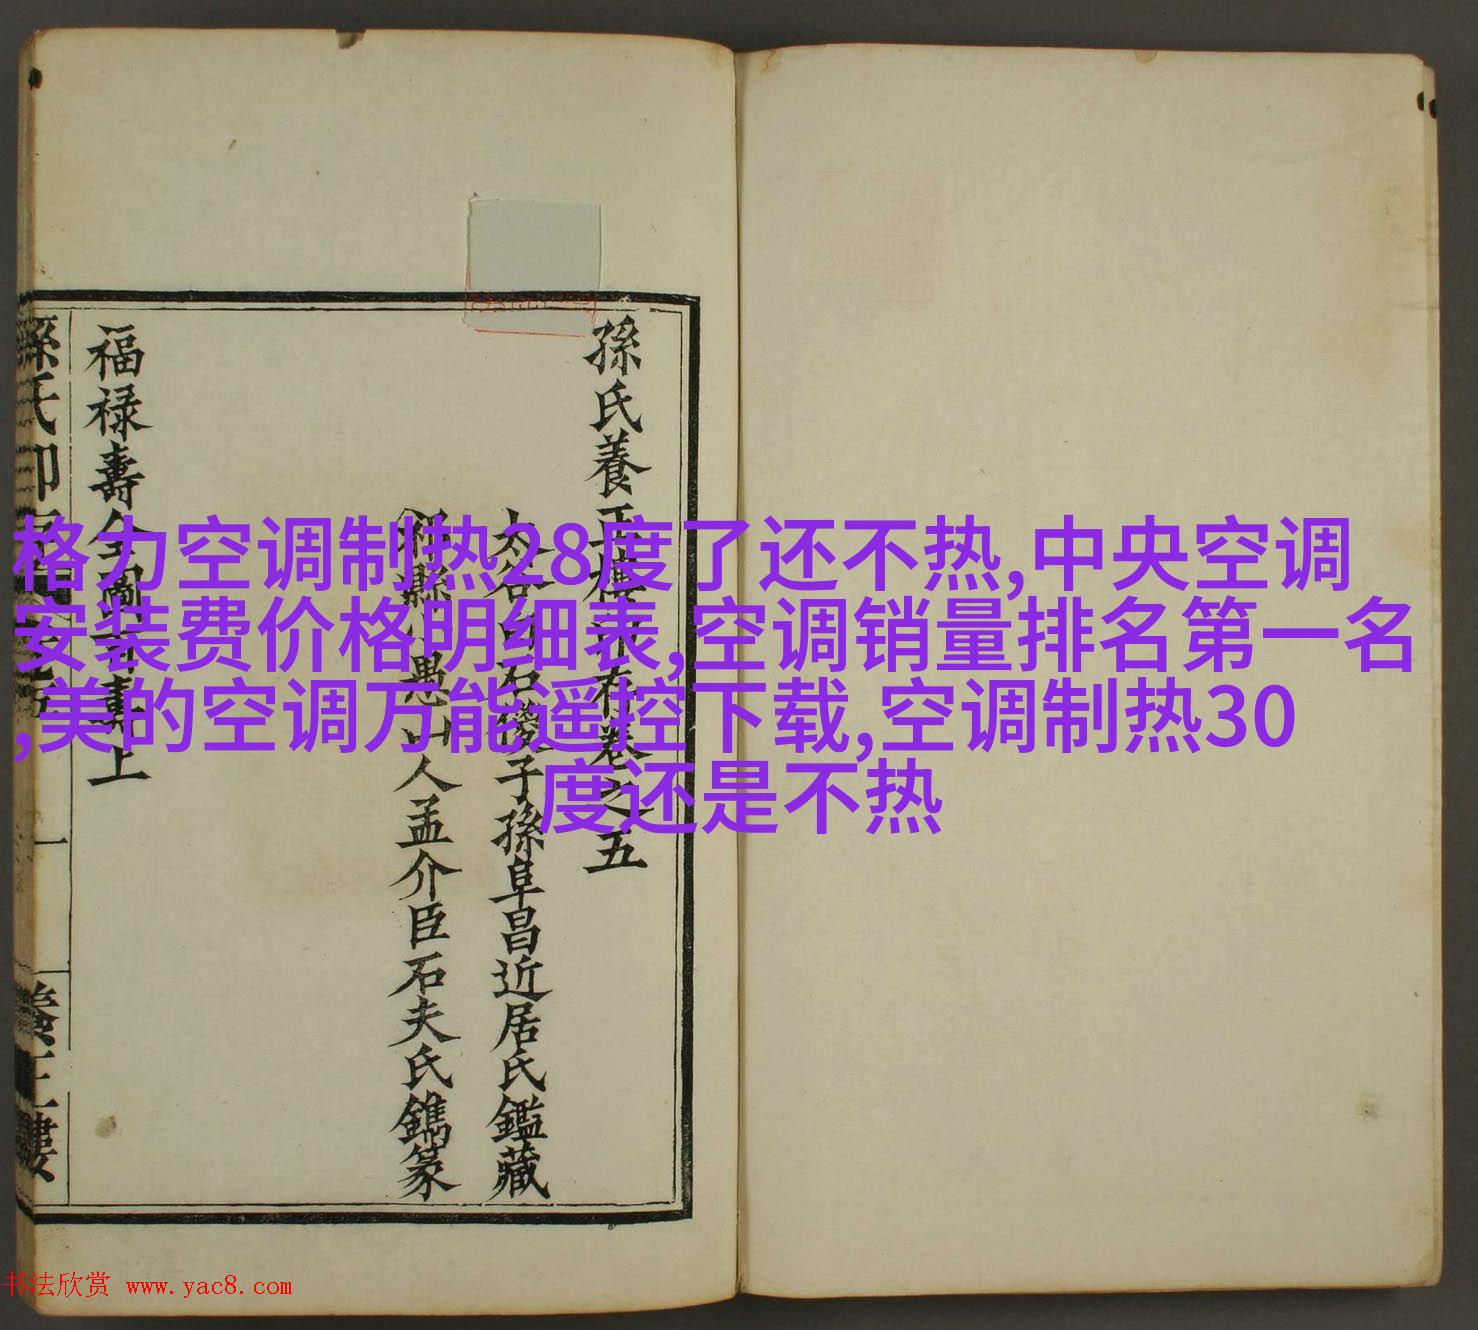 格力空调制热28度了还不热,中央空调
安装费价格明细表,空调销量排名第一名
,美的空调万能遥控下载,空调制热30
度还是不热
孫氏養正樓印存卷之五
太谷 石 子孫阜昌近居氏鑑藏
縣 愚山人孟介臣石夫氏鐫篆
福禄壽全圖 壽上
孫氏印
一
養正樓
书法欣赏 www.yac8.com